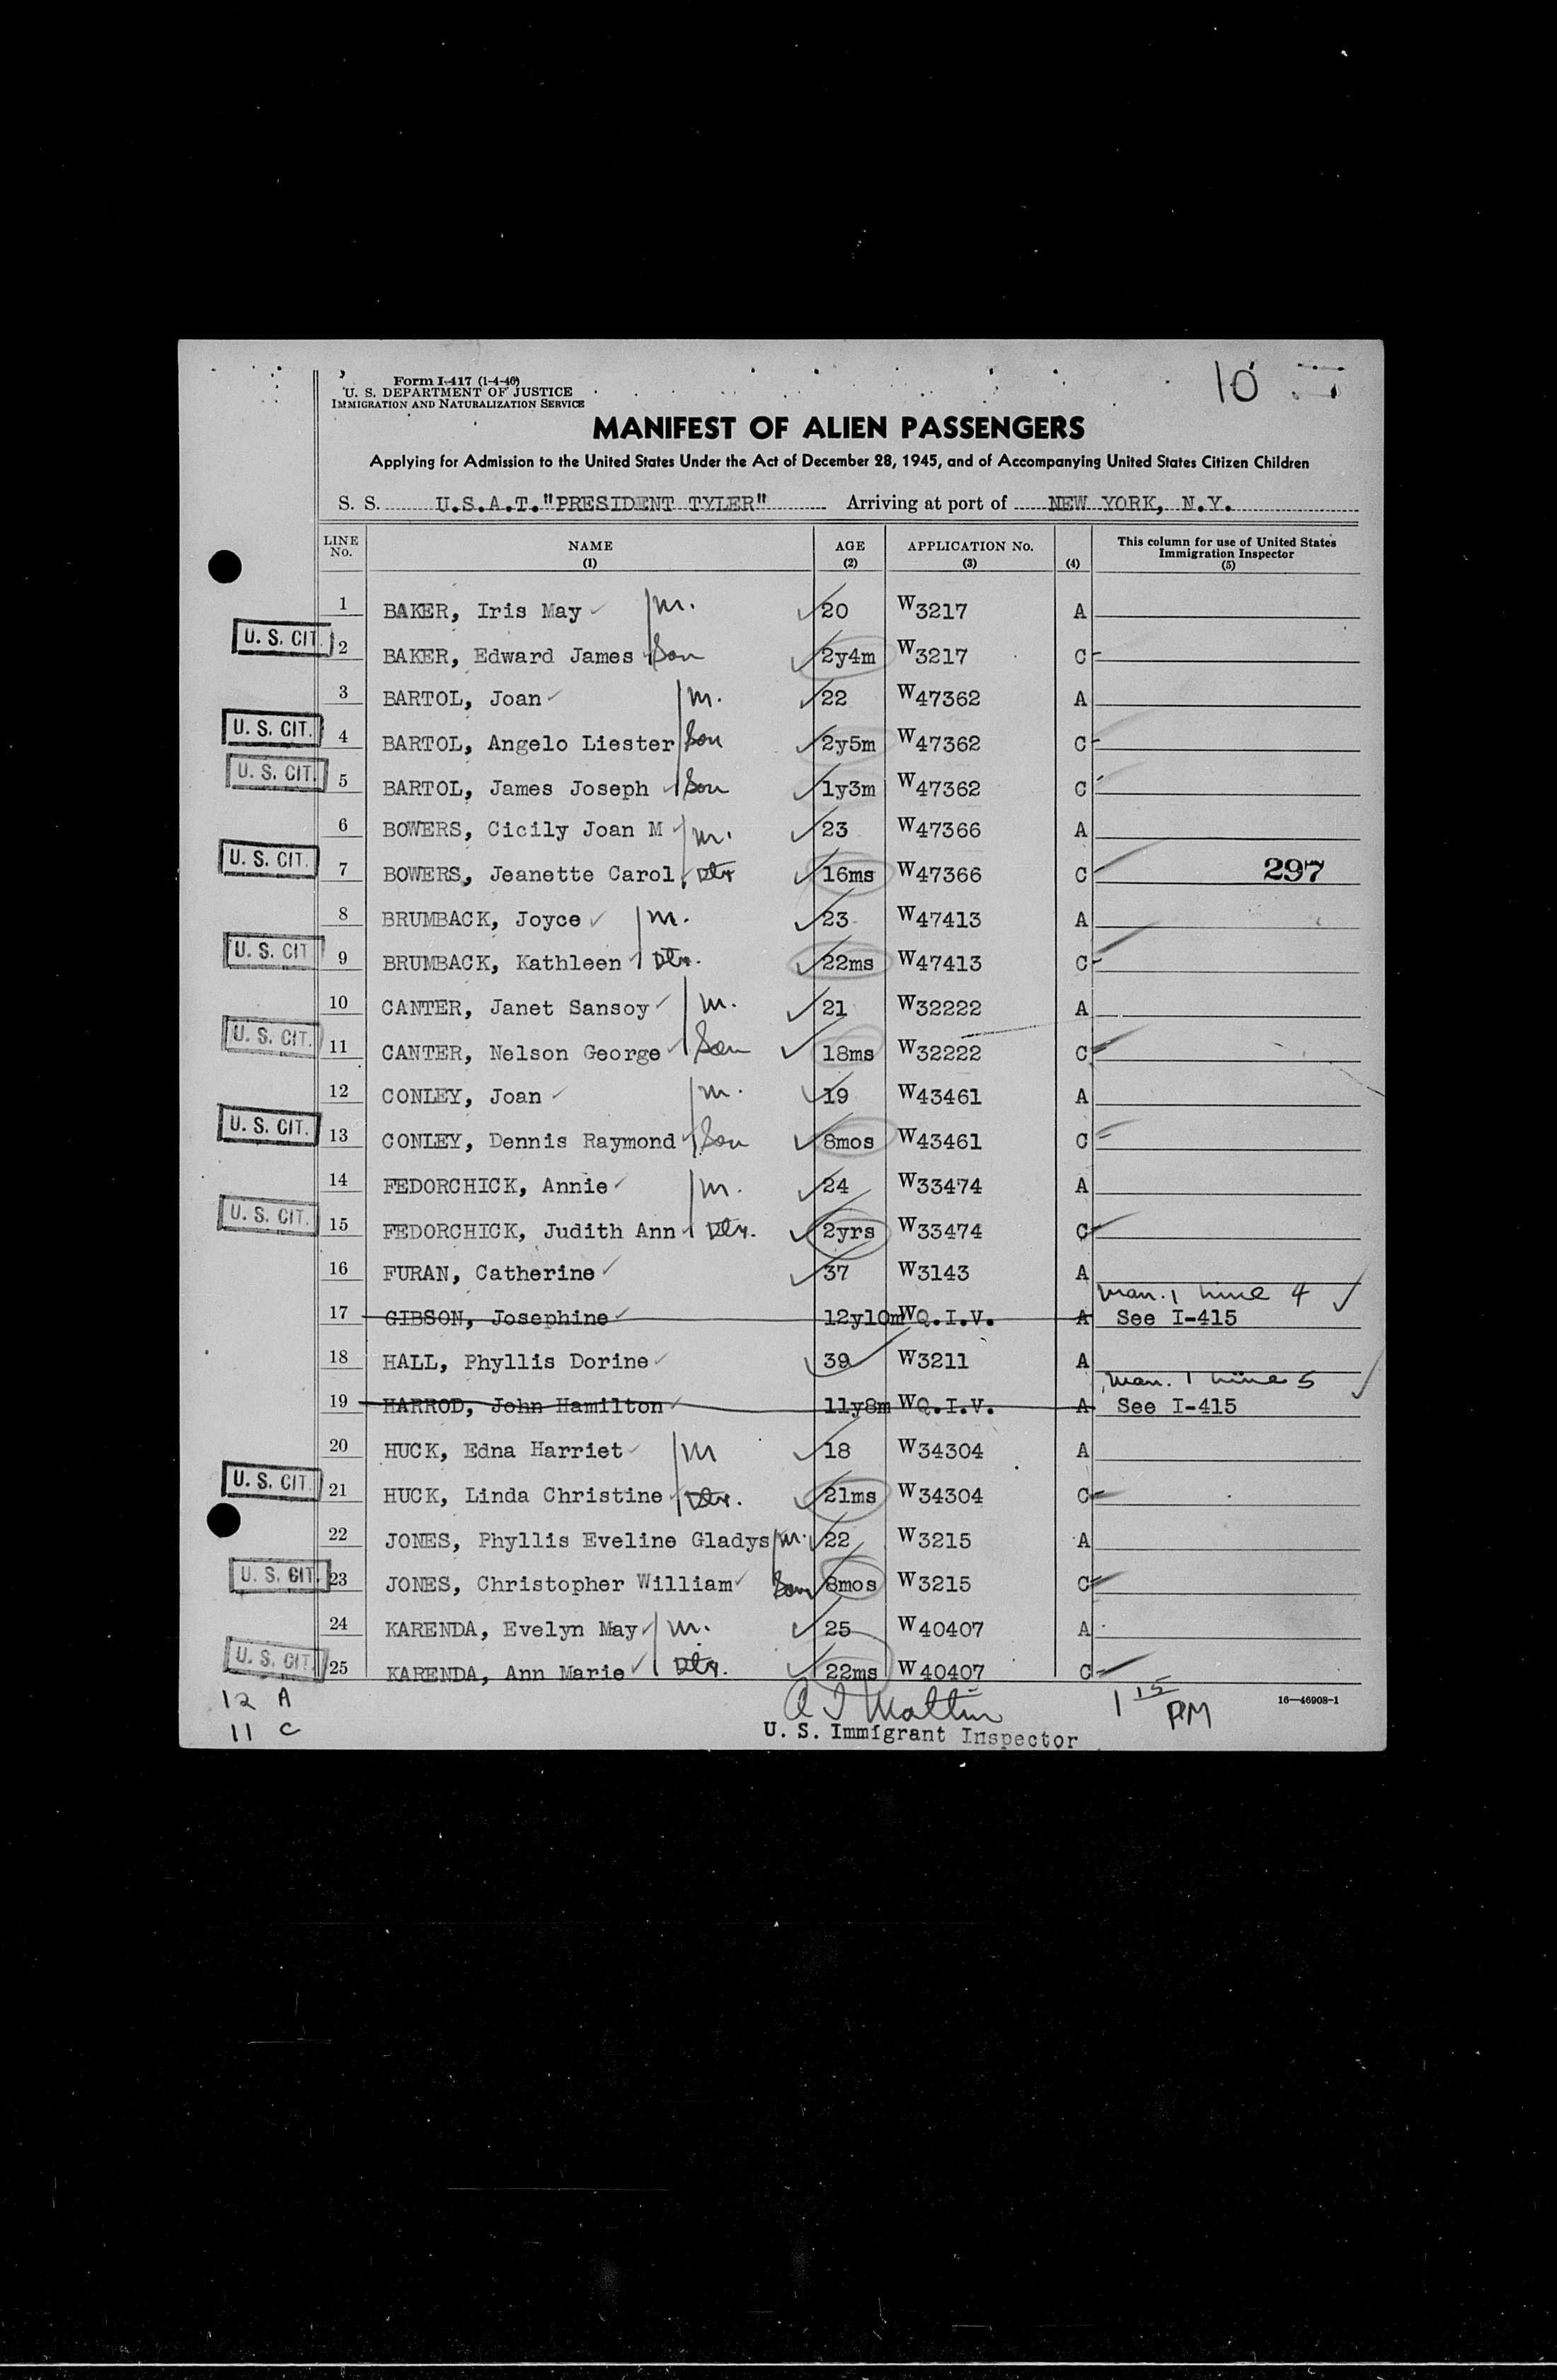 Form I-417 (1-4-46)
U. S. DEPARTMENT OF JUSTICE
IMMIGRATION AND NATURALIZATION SERVICE
10
MANIFEST OF ALIEN PASSENGERS
Applying for Admission to the United States Under the Act of December 28, 1945, and of Accompanying United States Citizen Children
S. S. U.S.A.T."PRESIDENT TYLER" Arriving at port of NEW YORK, N.Y.
LINE No. NAME (1) AGE (2) APPLICATION No. (3) (4) This column for use of United States Immigration Inspector (5)
1 BAKER, Iris May m. 20 W3217 A
U. S. CIT. 2 BAKER, Edward James Son 2y4m W3217 C
3 BARTOL, Joan m. 22 W47362 A
U. S. CIT. 4 BARTOL, Angelo Liester Son 2y5m W47362 C
U. S. CIT. 5 BARTOL, James Joseph Son 1y3m W47362 C
6 BOWERS, Cicily Joan M m. 23 W47366 A
U. S. CIT. 7 BOWERS, Jeanette Carol Dtr 16ms W47366 C 297
8 BRUMBACK, Joyce m. 23 W47413 A
U. S. CIT 9 BRUMBACK, Kathleen Dtr. 22ms W47413 C
10 CANTER, Janet Sansoy m. 21 W32222 A
U. S. CIT. 11 CANTER, Nelson George Son 18ms W32222 C
12 CONLEY, Joan m. 19 W43461 A
U. S. CIT. 13 CONLEY, Dennis Raymond Son 8mos W43461 C
14 FEDORCHICK, Annie m. 24 W33474 A
U. S. CIT. 15 FEDORCHICK, Judith Ann Dtr. 2yrs W33474 C
16 FURAN, Catherine 37 W3143 A
man. 1 Line 4
17 GIBSON, Josephine 12y10m WQ.I.V. A See I-415
18 HALL, Phyllis Dorine 39 W3211 A
man. 1 Line 5
19 HARROD, John Hamilton 11y8m WQ.I.V. A See I-415
20 HUCK, Edna Harriet m 18 W34304 A
U. S. CIT. 21 HUCK, Linda Christine Dtr. 21ms W34304 C
22 JONES, Phyllis Eveline Gladys m. 22 W3215 A
U. S. CIT. 23 JONES, Christopher William Son 8mos W3215 C
24 KARENDA, Evelyn May m. 25 W40407 A
U. S. CIT. 25 KARENDA, Ann Marie Dtr. 22ms W40407 C
12 A
11 C
1 15 PM
16—46908-1
U. S. Immigrant Inspector